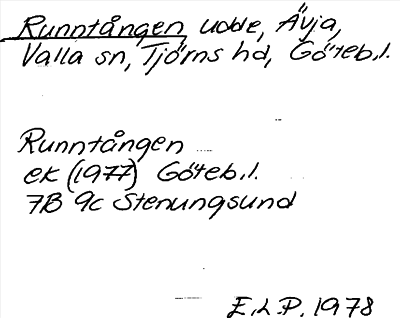 Runntången udde, Åvja,
Valla sn, Tjörns hd, Göteb.l.
Runntången
ek (1977) Göteb.l.
7B 9c Stenungsund
E.L.P. 1978